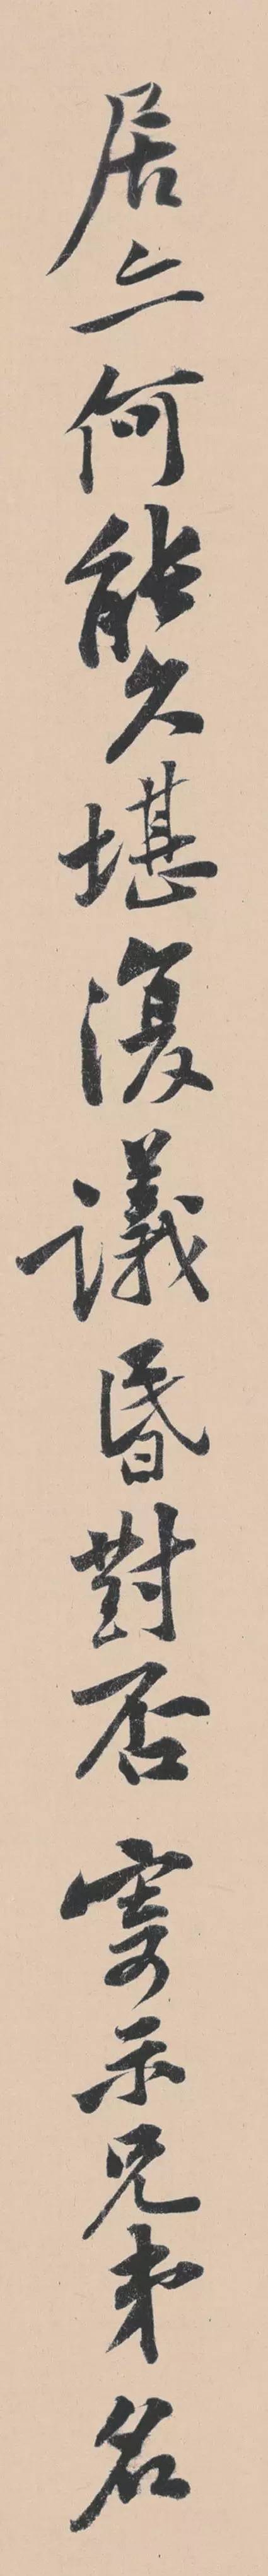 居亦何能久堪復議昏對否寄示兄弟名